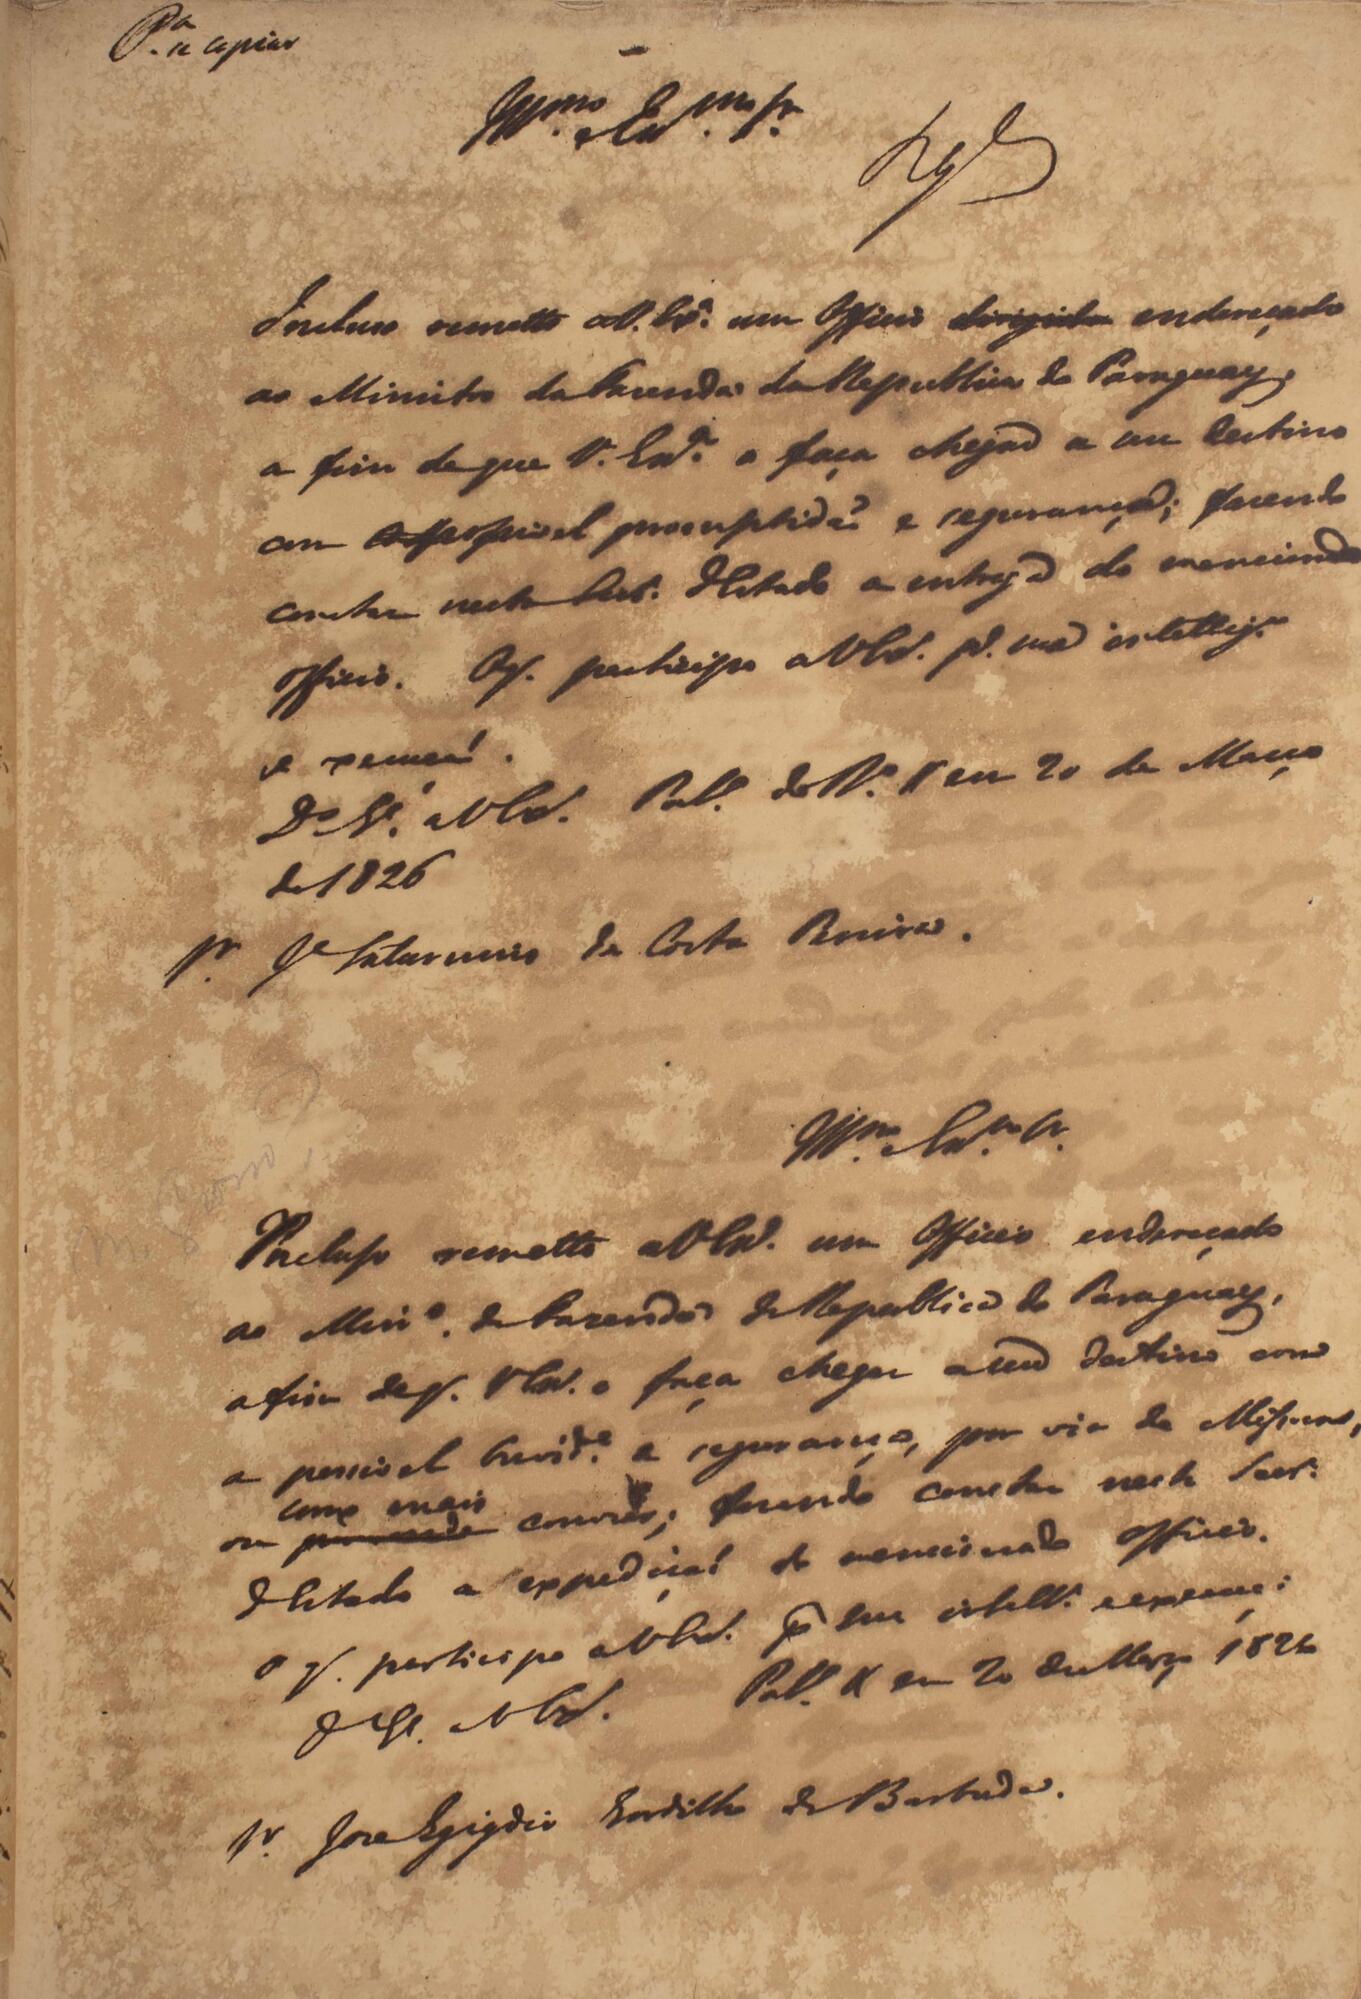 P.ª se copiar
Ill.mo e Ex.mo Sr.
Incluso remetto a V. Ex.ª um Officio dirigido endereçado
ao Ministro da Fazenda da Republica do Paraguay,
a fim de que V. Ex.ª o faça chegar a seu destino
com possivel promptidaõ e segurança; fazendo
constar nesta Secr. d'Estado a entrega do mencionado
officio. O q. participo a V Ex.ª p.ª sua intellig.ª
e execuçaõ.
D.s G.e a V Ex.ª Pal.º do R.º de Jan.ro em 20 de Março
de 1826
Sr. J.e Saturnino da Costa Pereira.
Ill.mo e Ex.mo Sr.
Incluso remetto a V Ex.ª um Officio endereçado
ao Min.º da Fazenda da Republica do Paraguay,
a fim de q. V Ex.ª o faça chegar a seu destino com
a possivel brevid.e e segurança, por via de Missoens,
como mais
ou convier; fazendo constar nesta Secr.
d'Estado a expediçaõ do mencionado officio.
O q. participo a V Ex.ª p.ª sua intell.ª e execuç.
D.s G.e a V Ex.ª Pal.º em 20 de Março 1826
Sr. José Egigdio Gordilho de Barbuda.